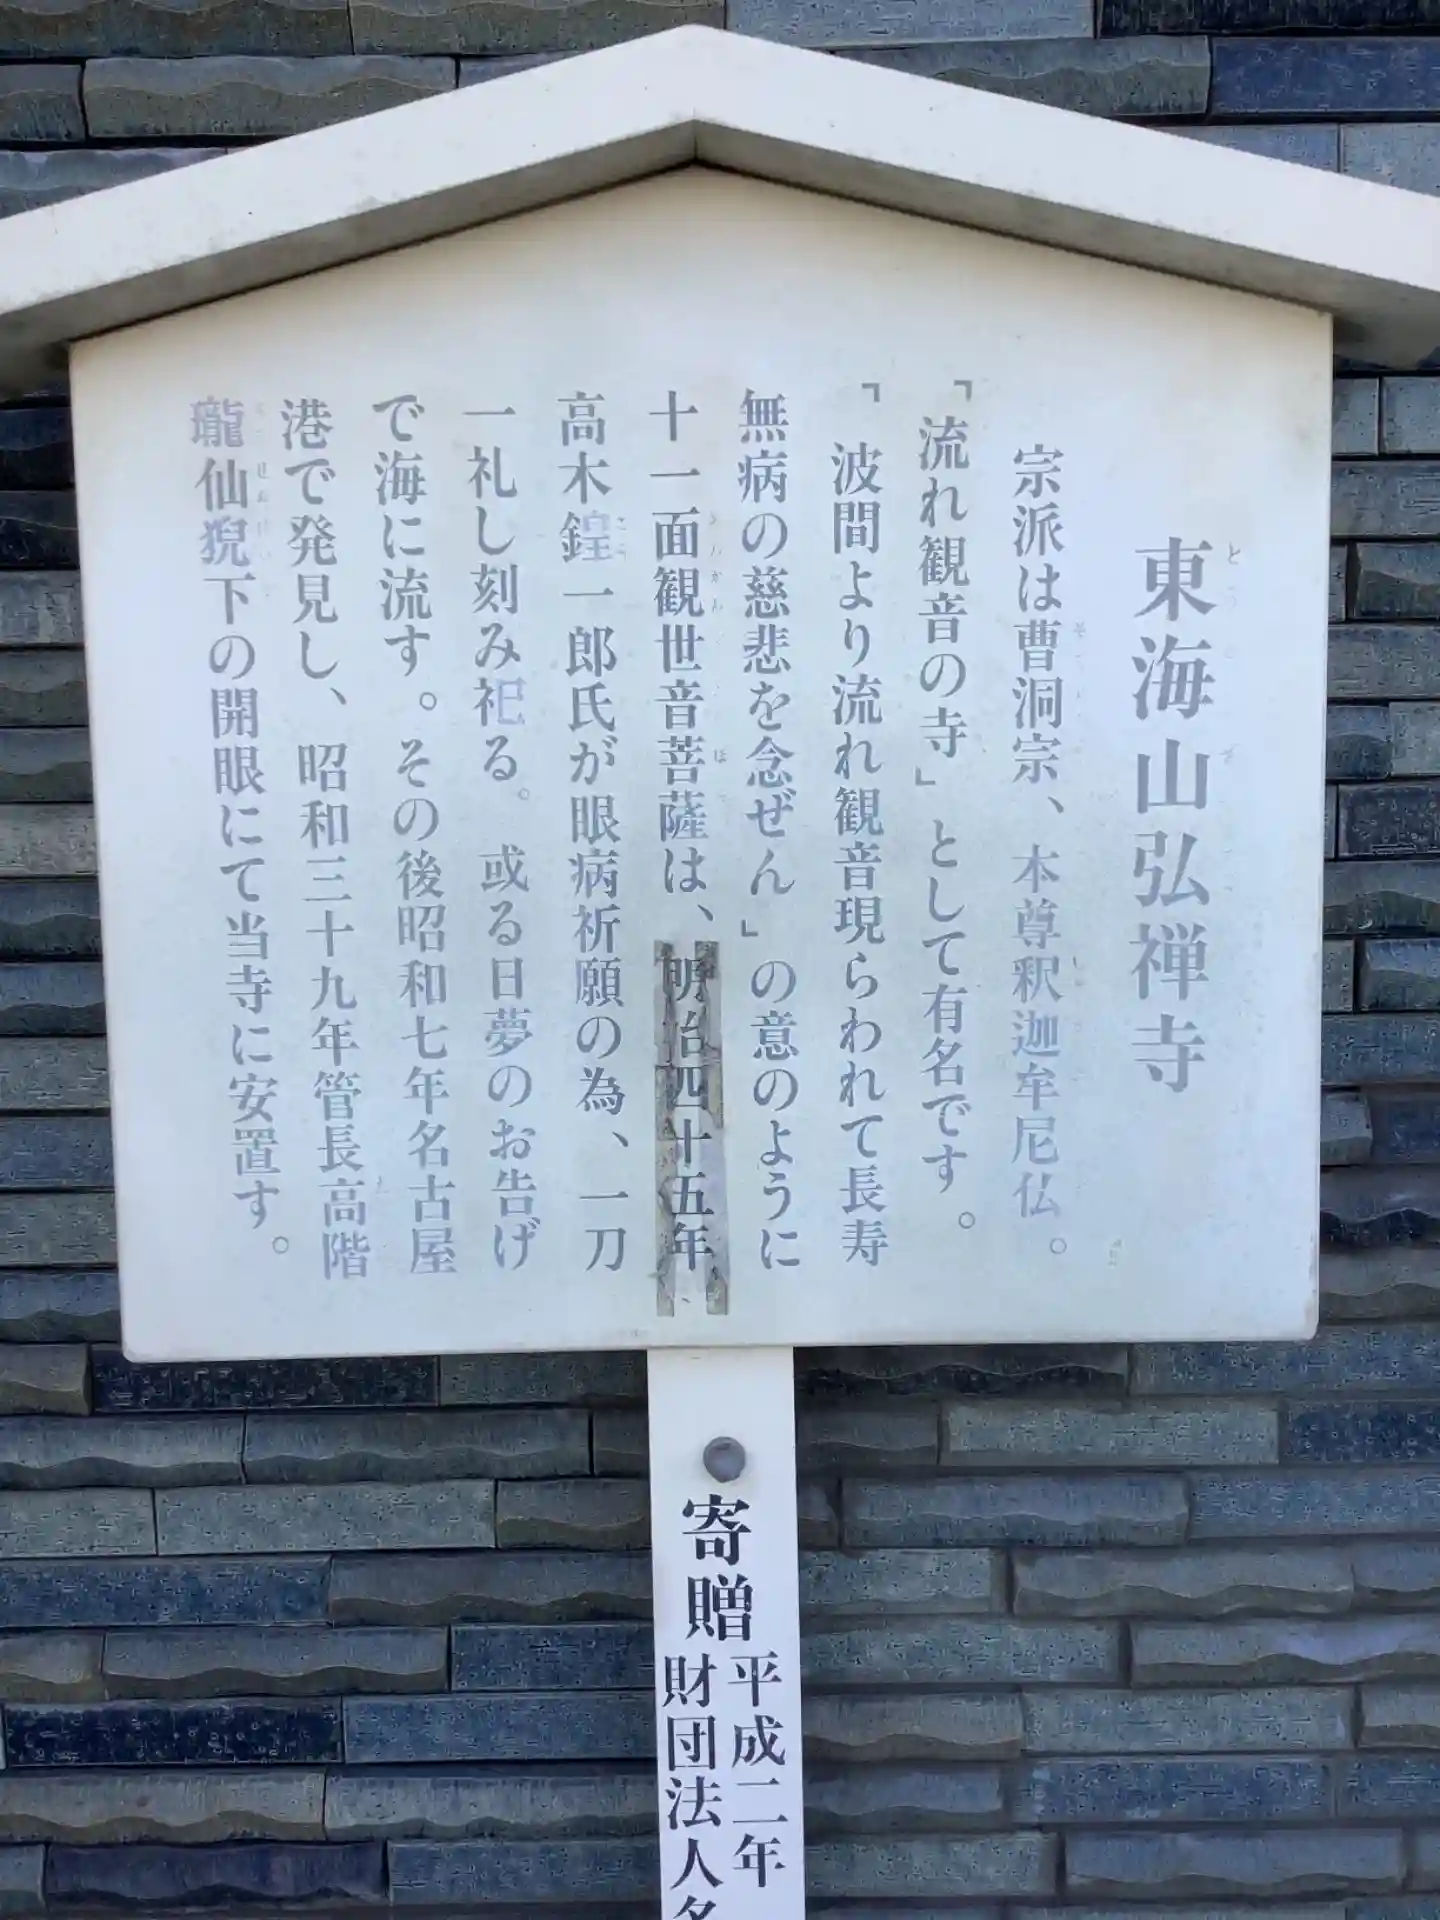 東海山弘禅寺
宗派は曹洞宗、本尊釈迦牟尼仏。
「流れ観音の寺」として有名です。
「波間より流れ観音現らわれて長寿
無病の慈悲を念ぜん」の意のように
十一面観世音菩薩は、明治四十五年
高木鍠一郎氏が眼病祈願の為、一刀
一礼し刻み祀る。或る日夢のお告げ
で海に流す。その後昭和七年名古屋
港で発見し、昭和三十九年管長高階
瓏仙猊下の開眼にて当寺に安置す。
寄贈
平成二年
財団法人名